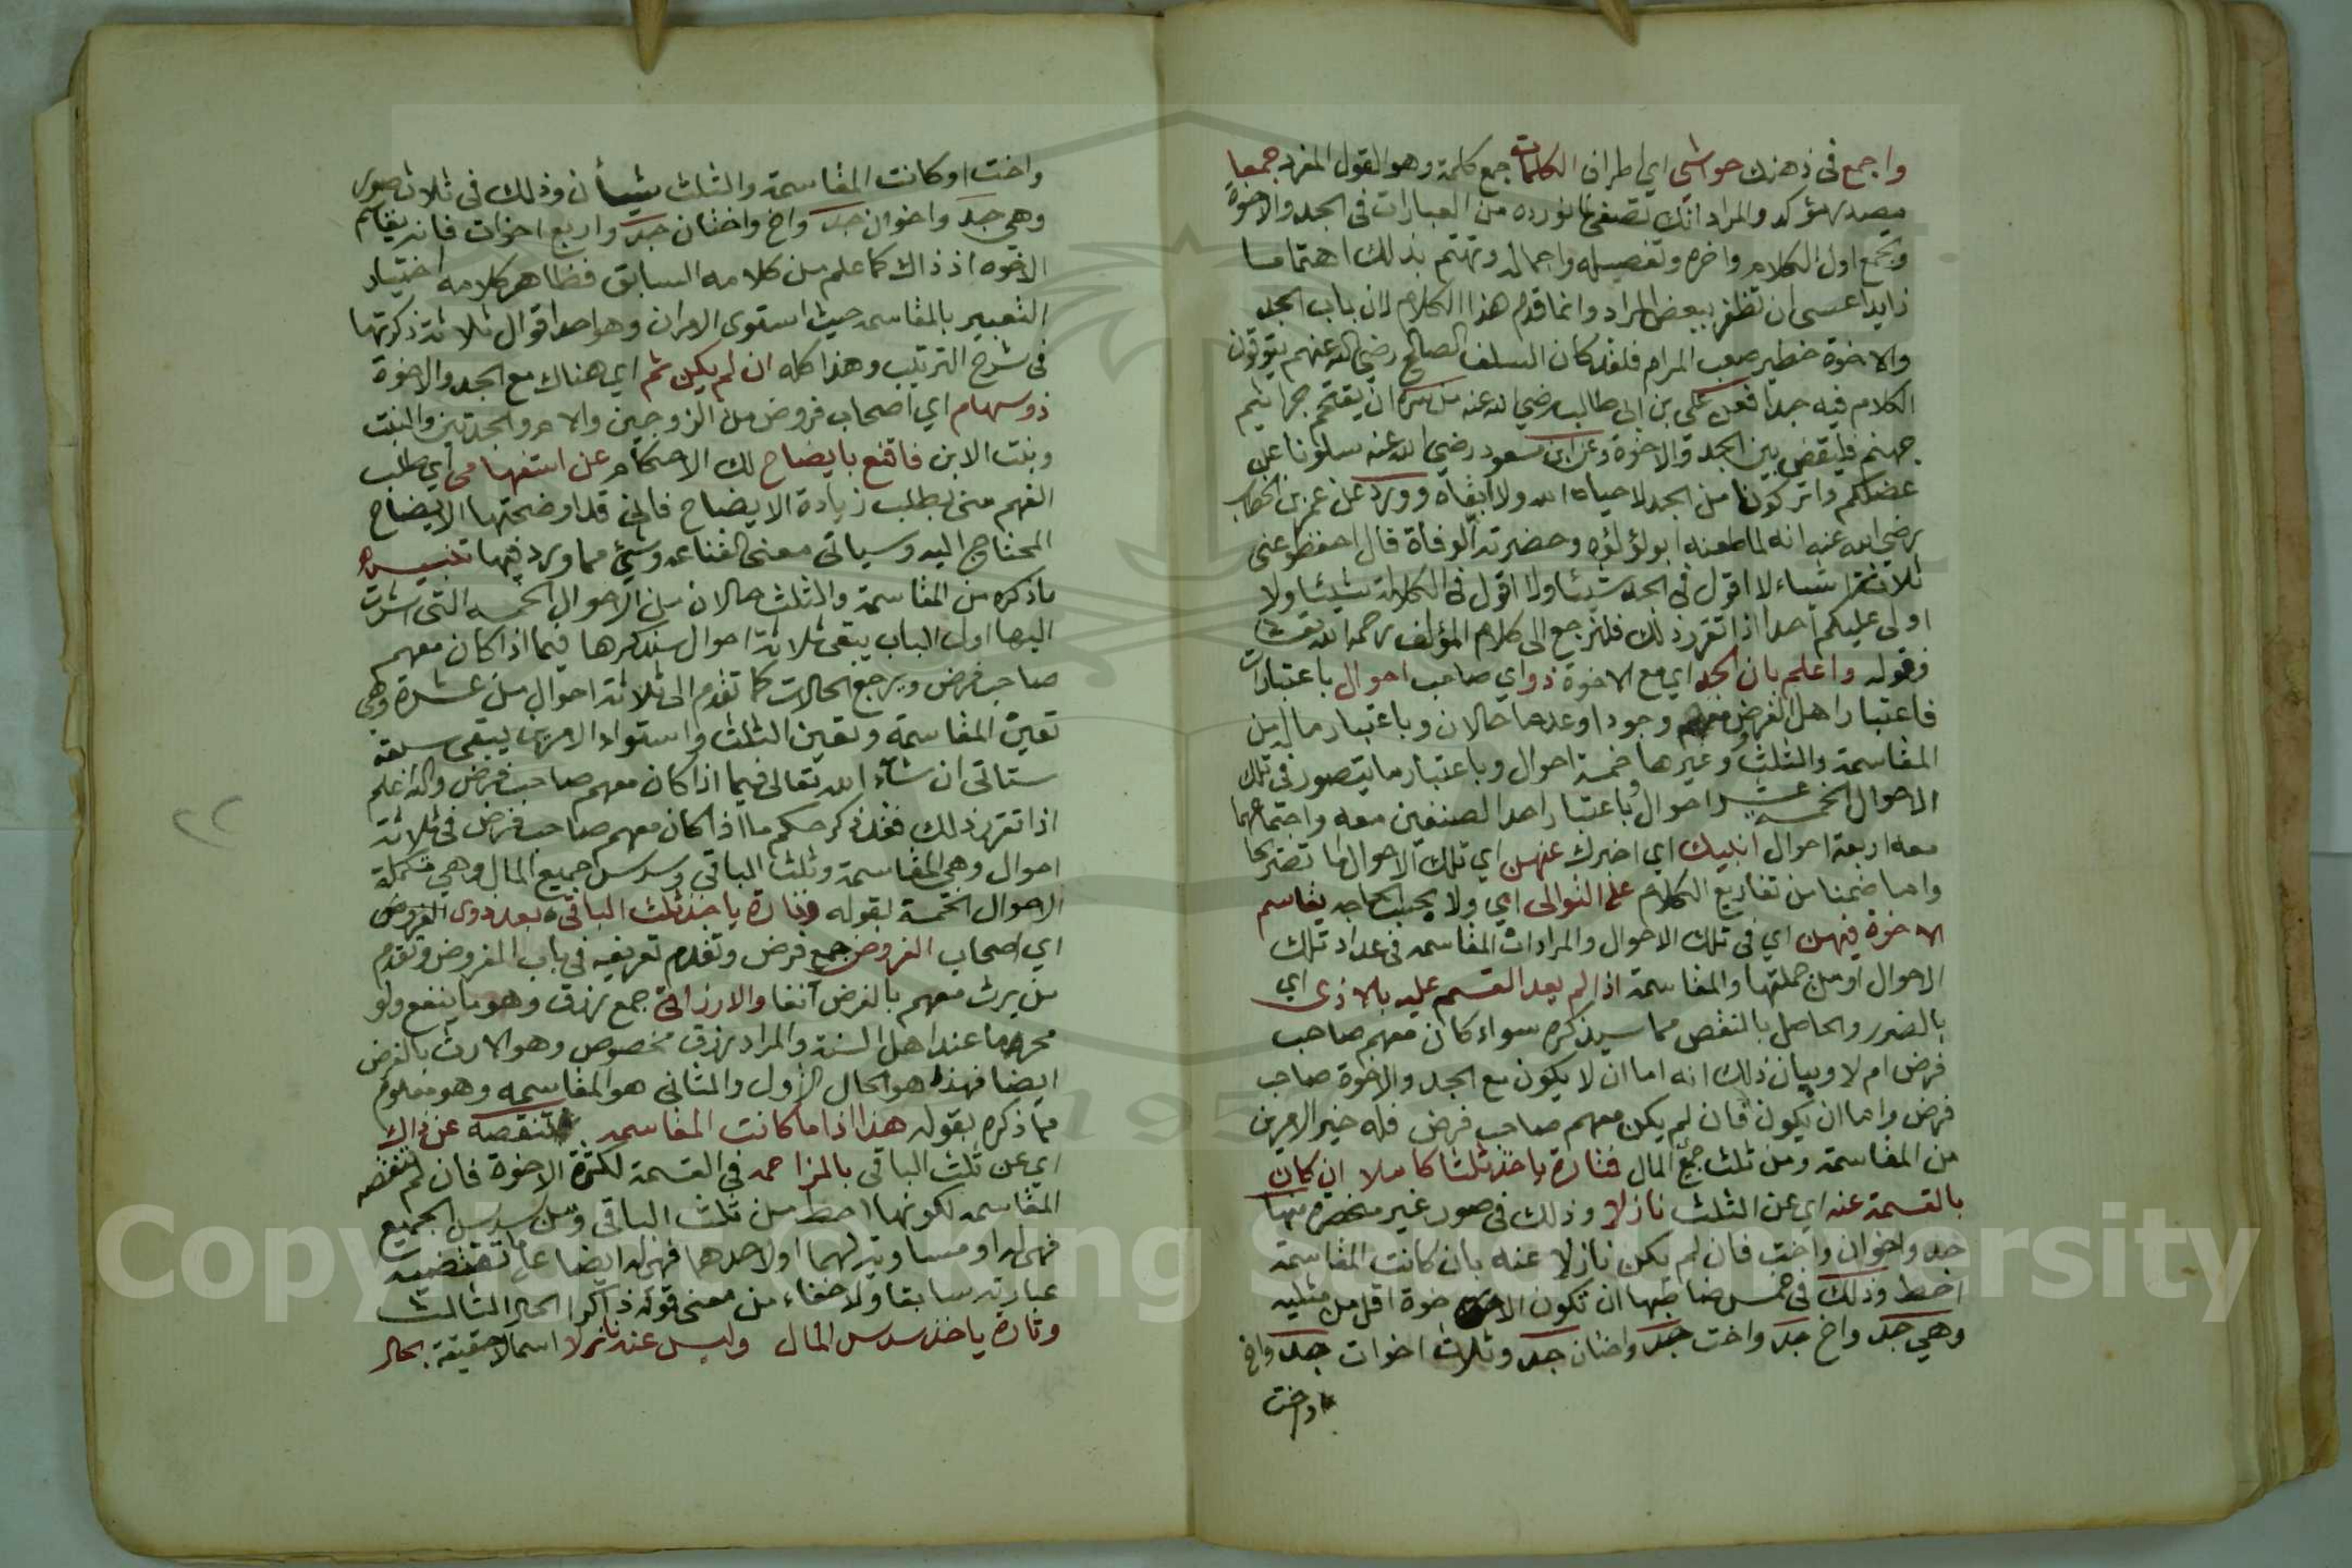 واجمع في ذهنك حواشي اي اطراف الكلمات جمع كلمة وهو القول المفرد جمعا
مصدر مؤكد والمراد انك تصغي لما نورده من العبارات في الجد والاخوة
وتجمع اول الكلام واخره وتفصيله واجماله وتهتم بذلك اهتماما
زايدا عسى ان تظفر ببعض المراد وانما قدم هذا الكلام لان باب الجد
والاخوة خطير صعب المرام فلقد كان السلف الصالح رضي الله عنهم يتوقون
الكلام فيه جدا فعن علي بن ابي طالب رضي الله عنه من سره ان يقتحم جراثيم
جهنم فليقض بين الجد والاخوة وعن ابن مسعود رضي الله عنه سلونا عن
عضلكم واتركونا من الجد لا حياه الله ولا ابقاه وورد عن عمر بن الخطاب
رضي الله عنه انه لما طعنه ابو لؤلؤه وحضرته الوفاة قال احفظو عني
ثلاثة اشياء لا اقول في الجد شيئا ولا اقول في الكلالة شيئا ولا
اولي عليكم احدا اذا تقرر ذلك فلنرجع الى كلام المؤلف رحمه الله تعالى
فقوله واعلم بان الجد اي مع الاخوة ذو اي صاحب احوال باعتبارات
فاعتبار اهل الفرض معهم وجودا وعدما حالان وباعتبار ماله من
المقاسمة والثلث وغيرها خمسة احوال وباعتبار ما يتصور في تلك
الاحوال الخمسة عشر احوال وباعتبار احد الصنفين معه واجتماعهما
معه اربعة احوال انبيك اي اخبرك عنهن اي تلك الاحوال اما تصريحا
واما ضمنا من تفاريع الكلام على التوالي اي ولا يحجب الجد يقاسم
الاخوة فيهن اي في تلك الاحوال والمراد ان المقاسمه في عداد تلك
الاحوال او من جملتها والمقاسمة اذا لم يعد القسم عليه بالاذى اي
بالضرر والحاصل بالنقص مما سيذكره سواء كان معهم صاحب
فرض ام لا وبيان ذلك انه اما ان لا يكون مع الجد والاخوة صاحب
فرض واما ان يكون فان لم يكن معهم صاحب فرض فله خير الامرين
من المقاسمة ومن ثلث جميع المال فتارة ياخذ ثلثا كاملا ان كان
بالقسمة عنه اي عن الثلث نازلا وذلك في صور غير منحصرة منها
جد واخوان واخت فان لم يكن نازلا عنه بان كانت المقاسمة
احظ وذلك في خمس ضابطها ان تكون الاخوة اقل من مثليه
وهي جد واخ جد واخت جد واختان جد وثلاث اخوات جد واخ
واخت
واخت او كانت المقاسمة والثلث سيان وذلك في ثلاث صور
وهي جد واخوان جد واخ واختان جد واربع اخوات فانه يقاسم
الاخوه اذ ذاك كما علم من كلامه السابق فظاهر كلامه اختيار
التعبير بالمقاسمه حيث استوى الامران وهو احد اقوال ثلاثة ذكرتها
في شرح الترتيب وهذا كله ان لم يكن ثم اي هناك مع الجد والاخوة
ذو سهام اي اصحاب فروض من الزوجين والام والجدتين والبنت
وبنت الابن فاقنع بايضاح لك الاحكام عن استفهامي اي طلب
الفهم مني بطلب زيادة الايضاح فاني قد اوضحتها الايضاح
المحتاج اليه وسياتي معنى القناعه وشئ مما ورد فيها تنبيه
ما ذكره من المقاسمة والثلث حالان من الاحوال الخمسه التي اشرت
اليها اول الباب يبقى ثلاثة احوال سنذكرها فيما اذا كان معهم
صاحب فرض ويرجع الحالات كما تقدم الى ثلاثة احوال من عشرة وهي
تعين المقاسمة وتعين الثلث واستواء الامرين يبقى سبعة
ستاتي ان شاء الله تعالى فيما اذا كان معهم صاحب فرض والله اعلم
اذا تقرر ذلك فقد ذكر حكم ما اذا كان معهم صاحب فرض في ثلاثة
احوال وهي المقاسمة وثلث الباقي وسدس جميع المال وهي تكملة
الاحوال الخمسة بقوله وتارة ياخذ ثلث الباقي بعد ذوي الفروض
اي اصحاب الفروض جمع فرض وتقدم تعريفه في باب الفروض وتقدم
من يرث معهم بالفرض آنفا والارزاق جمع رزق وهو ما ينفع ولو
محرما عند اهل السنة والمراد رزق مخصوص وهو الارث بالفرض
ايضا فهذا هو الحال الاول والثاني هو المقاسمه وهو معلوم
مما ذكره بقوله هذا اذا ما كانت المقاسمه تنقصه عن ذاك
اي عن ثلث الباقي بالمزاحمه في القسمة لكثرة الاخوة فان لم تنقصه
المقاسمه لكونها احظ من ثلث الباقي ومن سدس الجميع
فهي له او مساوية لهما او لاحدهما فهي له ايضا على ما تقتضيه
عبارته سابقا ولا خفاء من معنى قوله ذاكرا الحال الثالث
وتارة ياخذ سدس المال وليس عنه نازلا اسما لا حقيقة بحال
٢٢
Copyright © King Saud University
1957